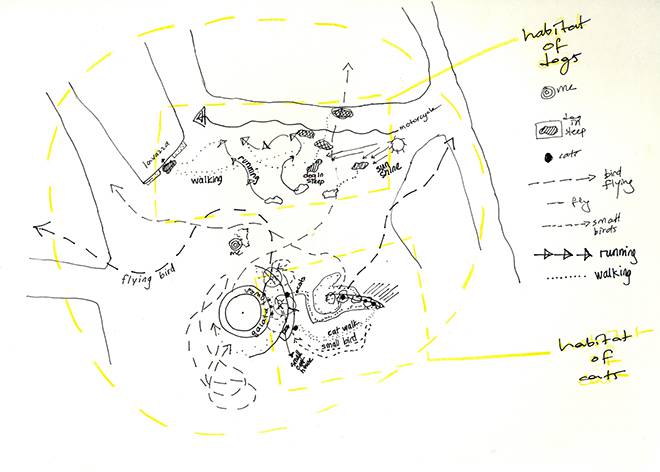 habitat
of
dogs
me
dog
in
sleep
cats
bird
flying
fly
small
birds
running
walking
habitat
of
cats
motorcycle
walking
running
dog in
sleep
sun
shine
me
flying bird
cat walk
small bird